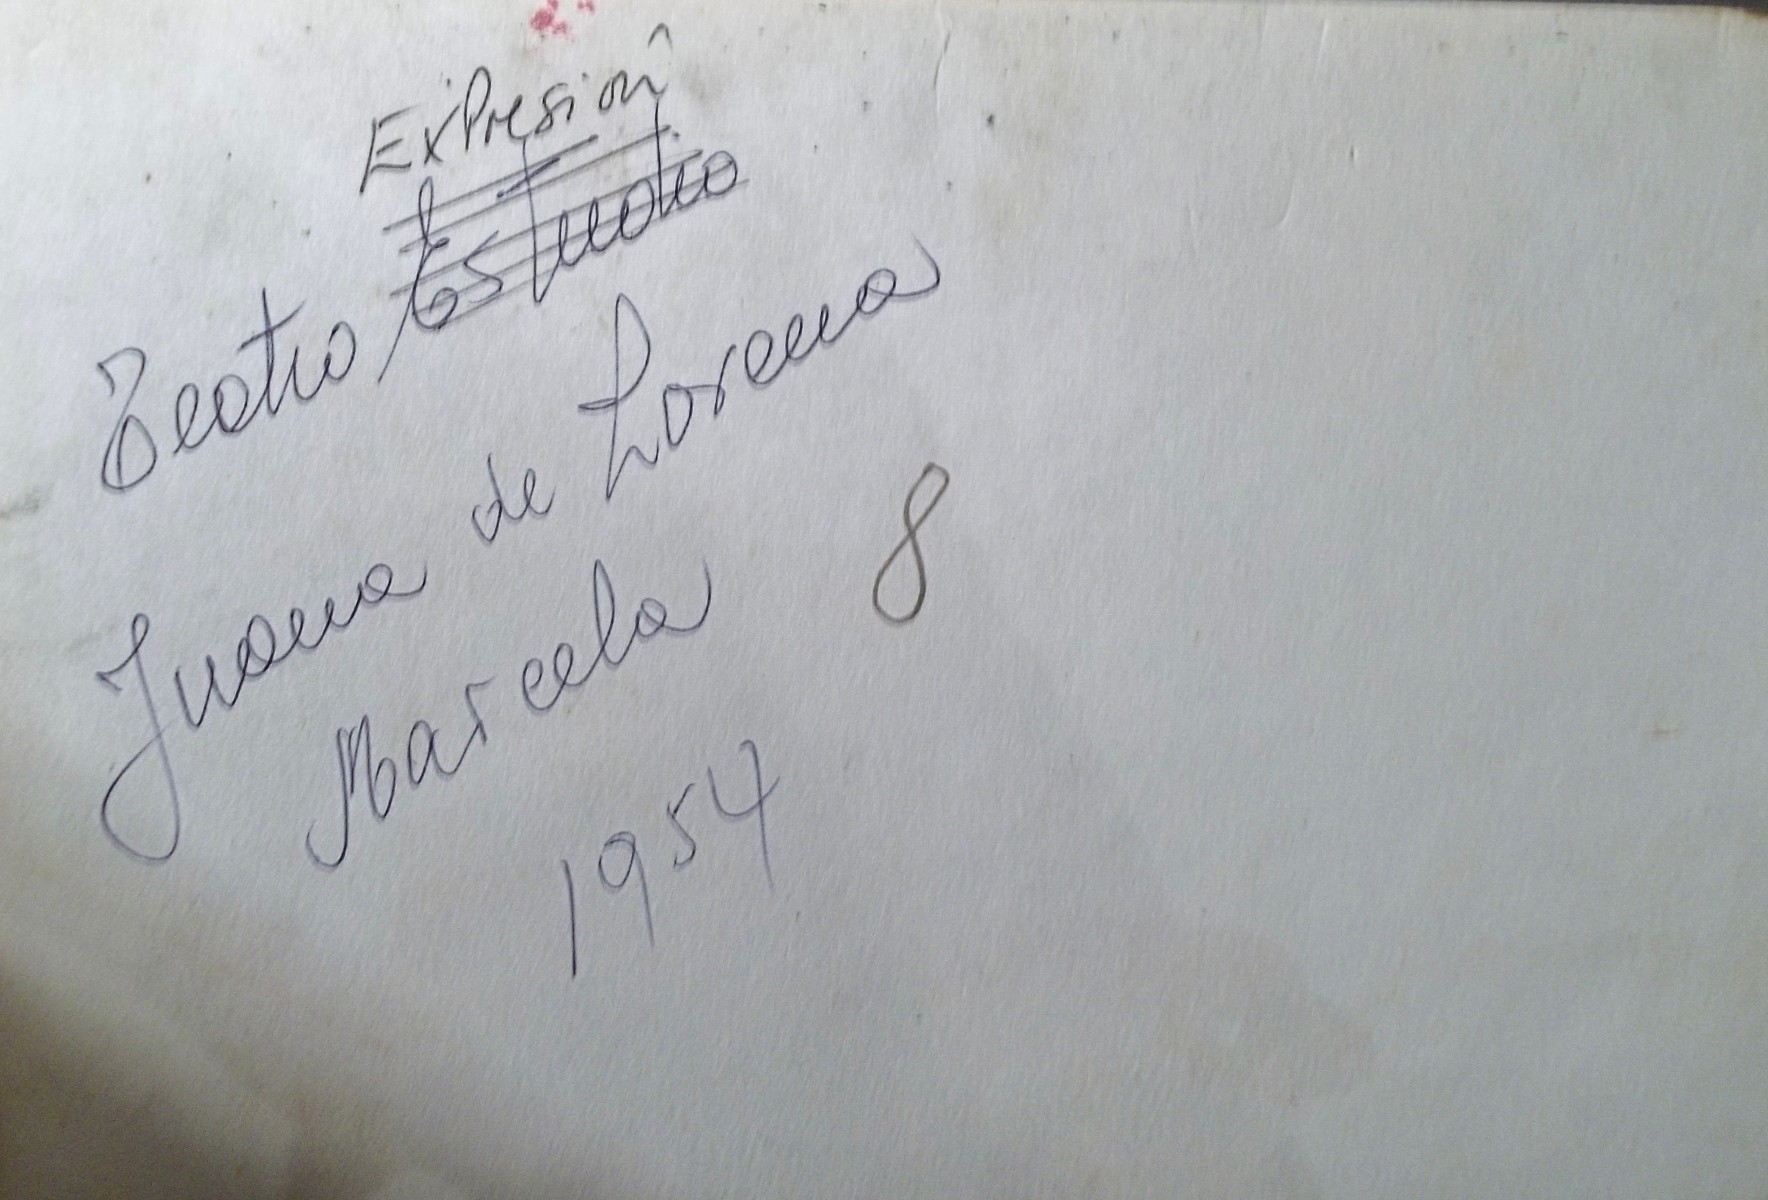 Expresión
Teatro Estudio
Juana de Lorena
Marcela 8
1954